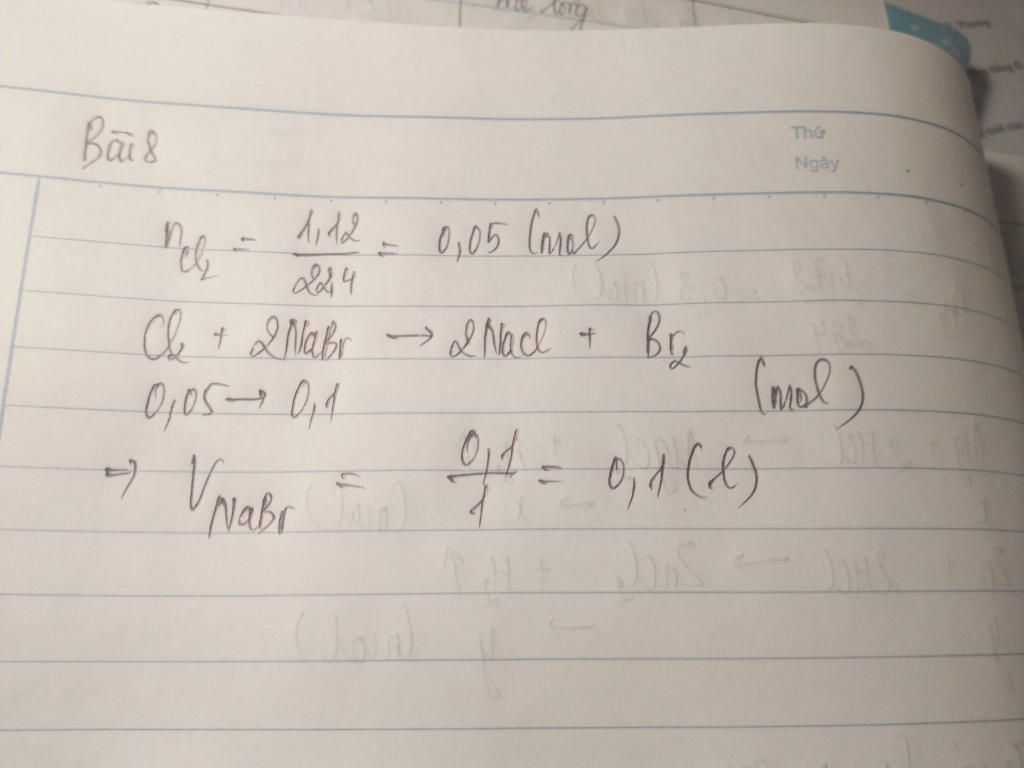 Thứ
Ngày
Bài 8
n_Cl₂ = 1,12/22,4 = 0,05 (mol)
Cl₂ + 2NaBr → 2NaCl + Br₂
0,05 → 0,1 (mol)
⇒ V_NaBr = 0,1/1 = 0,1 (l)